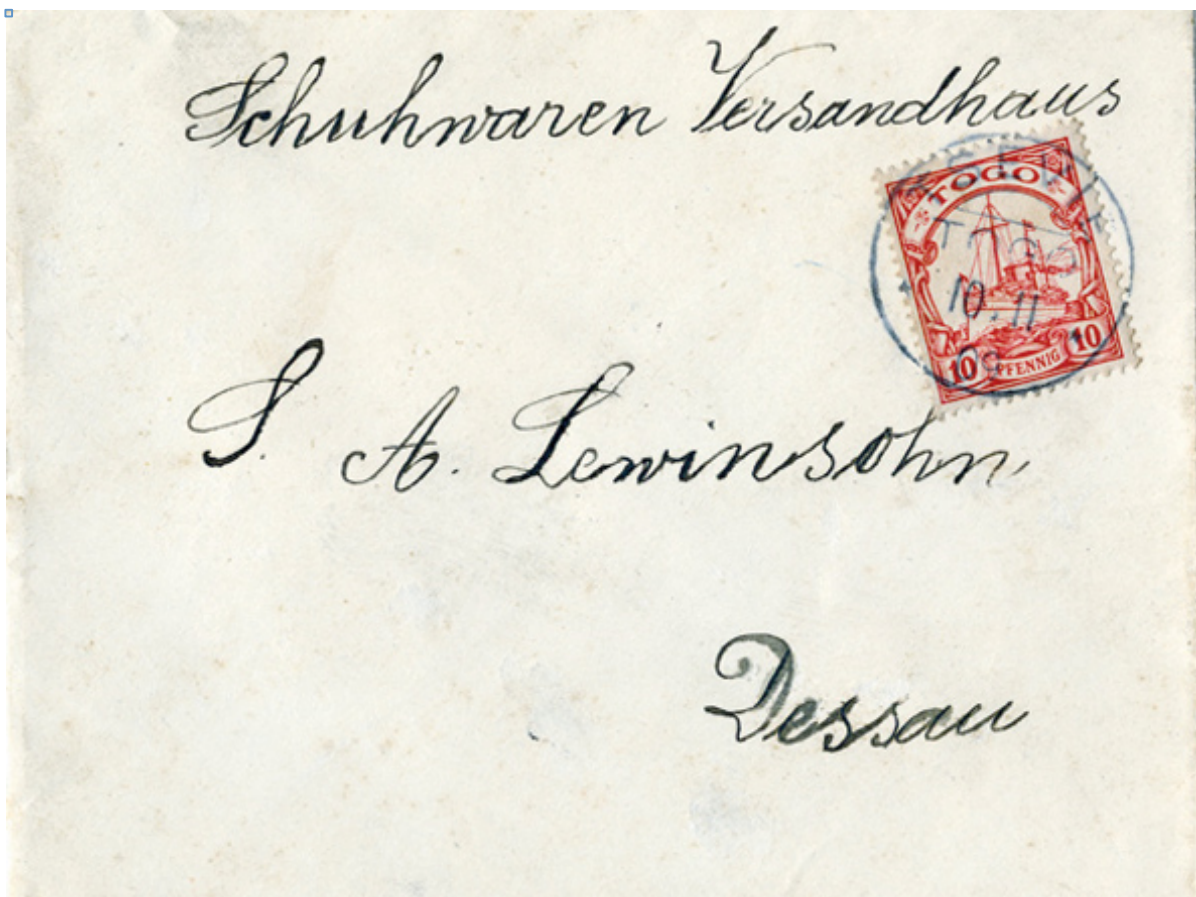 Schuhwaren Versandhaus
TOGO
10.11
10 PFENNIG 10
S. A. Lewinsohn,
Dessau